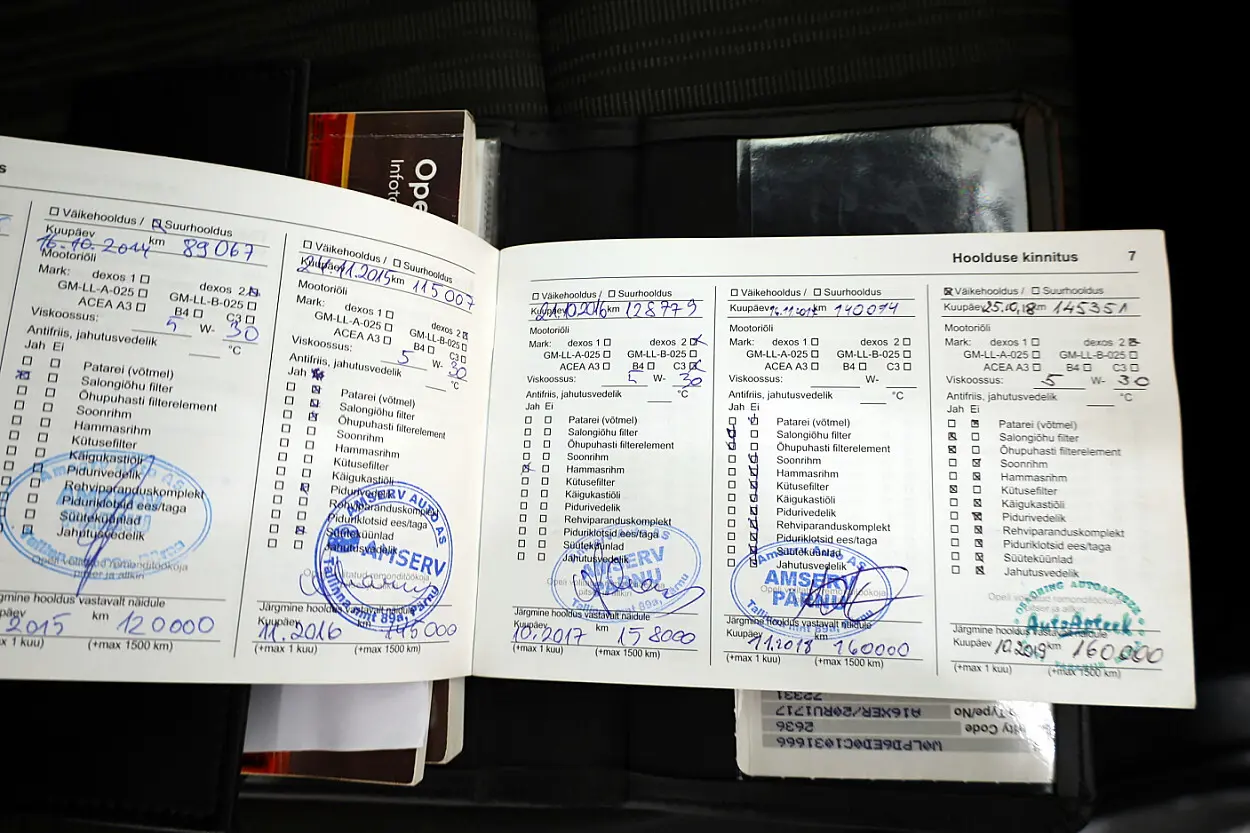 s
☐ Väikehooldus / ☒ Suurhooldus
Kuupäev 16.10.2014 km 89067
Mootoriõli
Mark: dexos 1 ☐ dexos 2 ☒
GM-LL-A-025 ☐ GM-LL-B-025 ☐
ACEA A3 ☐ B4 ☐ C3 ☐
Viskoossus: 5 W- 30
Antifriis, jahutusvedelik °C
Jah Ei
Patarei (võtmel)
Salongiõhu filter
Õhupuhasti filterelement
Soonrihm
Hammasrihm
Kütusefilter
Käigukastiõli
Pidurivedelik
Rehviparanduskomplekt
Piduriklotsid ees/taga
Süüteküünlad
Jahutusvedelik
Järgmine hooldus vastavalt näidule
Kuupäev 2015 km 120000
(+max 1 kuu) (+max 1500 km)
☐ Väikehooldus / ☐ Suurhooldus
Kuupäev 24.11.2015 km 115007
Mootoriõli
Mark: dexos 1 ☐ dexos 2 ☒
GM-LL-A-025 ☐ GM-LL-B-025 ☐
ACEA A3 ☐ B4 ☐ C3 ☐
Viskoossus: 5 W- 30
Antifriis, jahutusvedelik °C
Jah
Patarei (võtmel)
Salongiõhu filter
Õhupuhasti filterelement
Soonrihm
Hammasrihm
Kütusefilter
Käigukastiõli
Pidurivedelik
Rehviparanduskomplekt
Piduriklotsid ees/taga
Süüteküünlad
Jahutusvedelik
AMSERV AUTO AS
AMSERV
Tallinna mnt 89a, Pärnu
Järgmine hooldus vastavalt näidule
Kuupäev 11.2016 km 145000
(+max 1 kuu) (+max 1500 km)
Hoolduse kinnitus 7
☐ Väikehooldus / ☐ Suurhooldus
Kuupäev 21.10.2016 km 128779
Mootoriõli
Mark: dexos 1 ☐ dexos 2 ☒
GM-LL-A-025 ☐ GM-LL-B-025 ☐
ACEA A3 ☐ B4 ☐ C3 ☒
Viskoossus: 5 W- 30
Antifriis, jahutusvedelik °C
Jah Ei
Patarei (võtmel)
Salongiõhu filter
Õhupuhasti filterelement
Soonrihm
Hammasrihm
Kütusefilter
Käigukastiõli
Pidurivedelik
Rehviparanduskomplekt
Piduriklotsid ees/taga
Süüteküünlad
Jahutusvedelik
AMSERV
PÄRNU
Järgmine hooldus vastavalt näidule
Kuupäev 10.2017 km 158000
(+max 1 kuu) (+max 1500 km)
☐ Väikehooldus / ☐ Suurhooldus
Kuupäev km 140094
Mootoriõli
Mark: dexos 1 ☐ dexos 2 ☐
GM-LL-A-025 ☐ GM-LL-B-025 ☐
ACEA A3 ☐ B4 ☐ C3 ☐
Viskoossus: W-
Antifriis, jahutusvedelik °C
Jah Ei
Patarei (võtmel)
Salongiõhu filter
Õhupuhasti filterelement
Soonrihm
Hammasrihm
Kütusefilter
Käigukastiõli
Pidurivedelik
Rehviparanduskomplekt
Piduriklotsid ees/taga
Süüteküünlad
Jahutusvedelik
AMSERV
PÄRNU
Tallinna mnt 89a, Pärnu
Järgmine hooldus vastavalt näidule
Kuupäev 11.2018 km 160000
(+max 1 kuu) (+max 1500 km)
☒ Väikehooldus / ☐ Suurhooldus
Kuupäev 25.10.18 km 145351
Mootoriõli
Mark: dexos 1 ☐ dexos 2 ☒
GM-LL-A-025 ☐ GM-LL-B-025 ☐
ACEA A3 ☐ B4 ☐ C3 ☐
Viskoossus: 5 W- 30
Antifriis, jahutusvedelik °C
Jah Ei
Patarei (võtmel)
Salongiõhu filter
Õhupuhasti filterelement
Soonrihm
Hammasrihm
Kütusefilter
Käigukastiõli
Pidurivedelik
Rehviparanduskomplekt
Piduriklotsid ees/taga
Süüteküünlad
Jahutusvedelik
AUTOAPTEEK
AutoApteek
Järgmine hooldus vastavalt näidule
Kuupäev 10.2019 km 160000
(+max 1 kuu) (+max 1500 km)
Ope
Infot
W0LPD6ED0C1031666
ity Code 2636
Type/No A16XER/20RU1717
72331